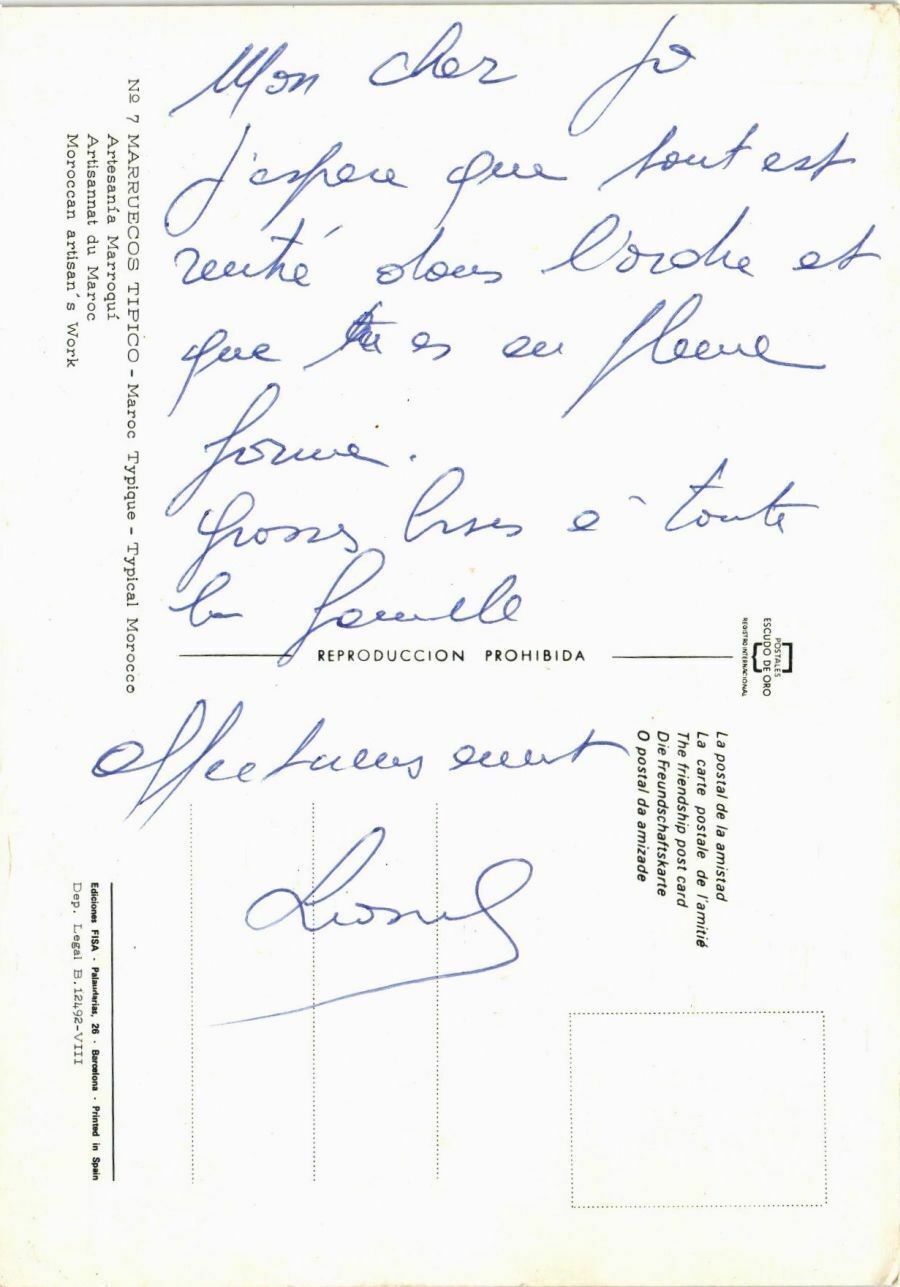 Mon cher Jo
j'espere que tout est
rentré dans l'ordre et
que tu es en pleine
forme.
Grosses bises à toute
la famille
affectueusement
Lionel
Nº 7 MARRUECOS TIPICO - Maroc Typique - Typical Morocco
Artesanía Marroquí
Artisannat du Maroc
Moroccan artisan's Work
REPRODUCCION PROHIBIDA
POSTALES
ESCUDO DE ORO
REGISTRO INTERNACIONAL
La postal de la amistad
La carte postale de l'amitié
The friendship post card
Die Freundschaftskarte
O postal da amizade
Ediciones FISA - Palaudarias, 26 - Barcelona - Printed in Spain
Dep. Legal B. 12492-VIII